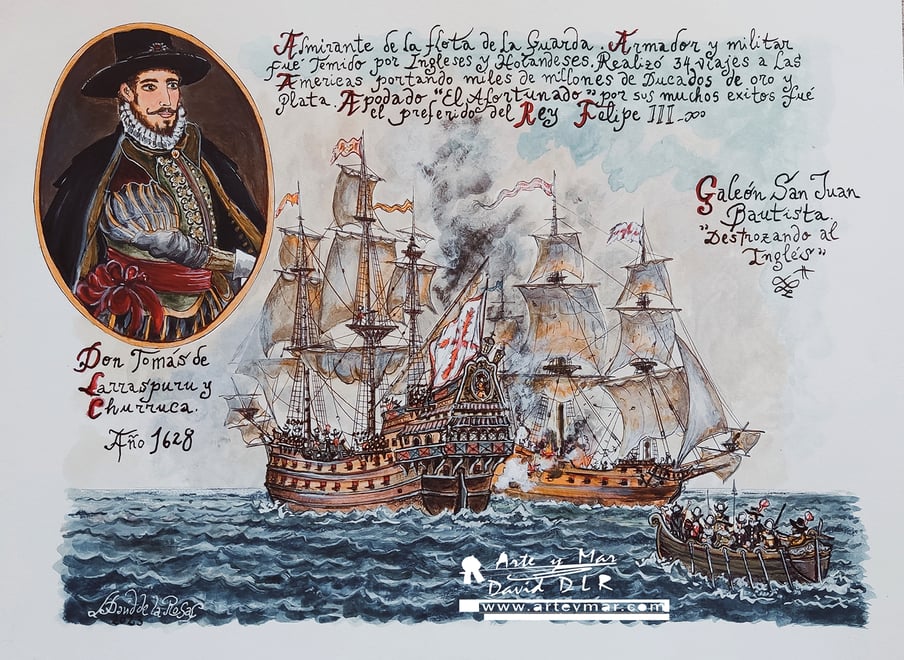 Almirante de la flota de la Guarda. Armador y militar
fué Temido por Ingleses y Holandeses. Realizó 34 viajes a las
Americas portando miles de millones de Ducados de oro y
Plata. Apodado "El Afortunado" por sus muchos exitos fué
el preferido del Rey Felipe III
Galeón San Juan
Bautista.
"Destrozando al
Inglés"
Don Tomás de
Larraspuru y
Churruca.
Año 1628
Arte y Mar
David D L R
www.arteymar.com
David de la Rosa